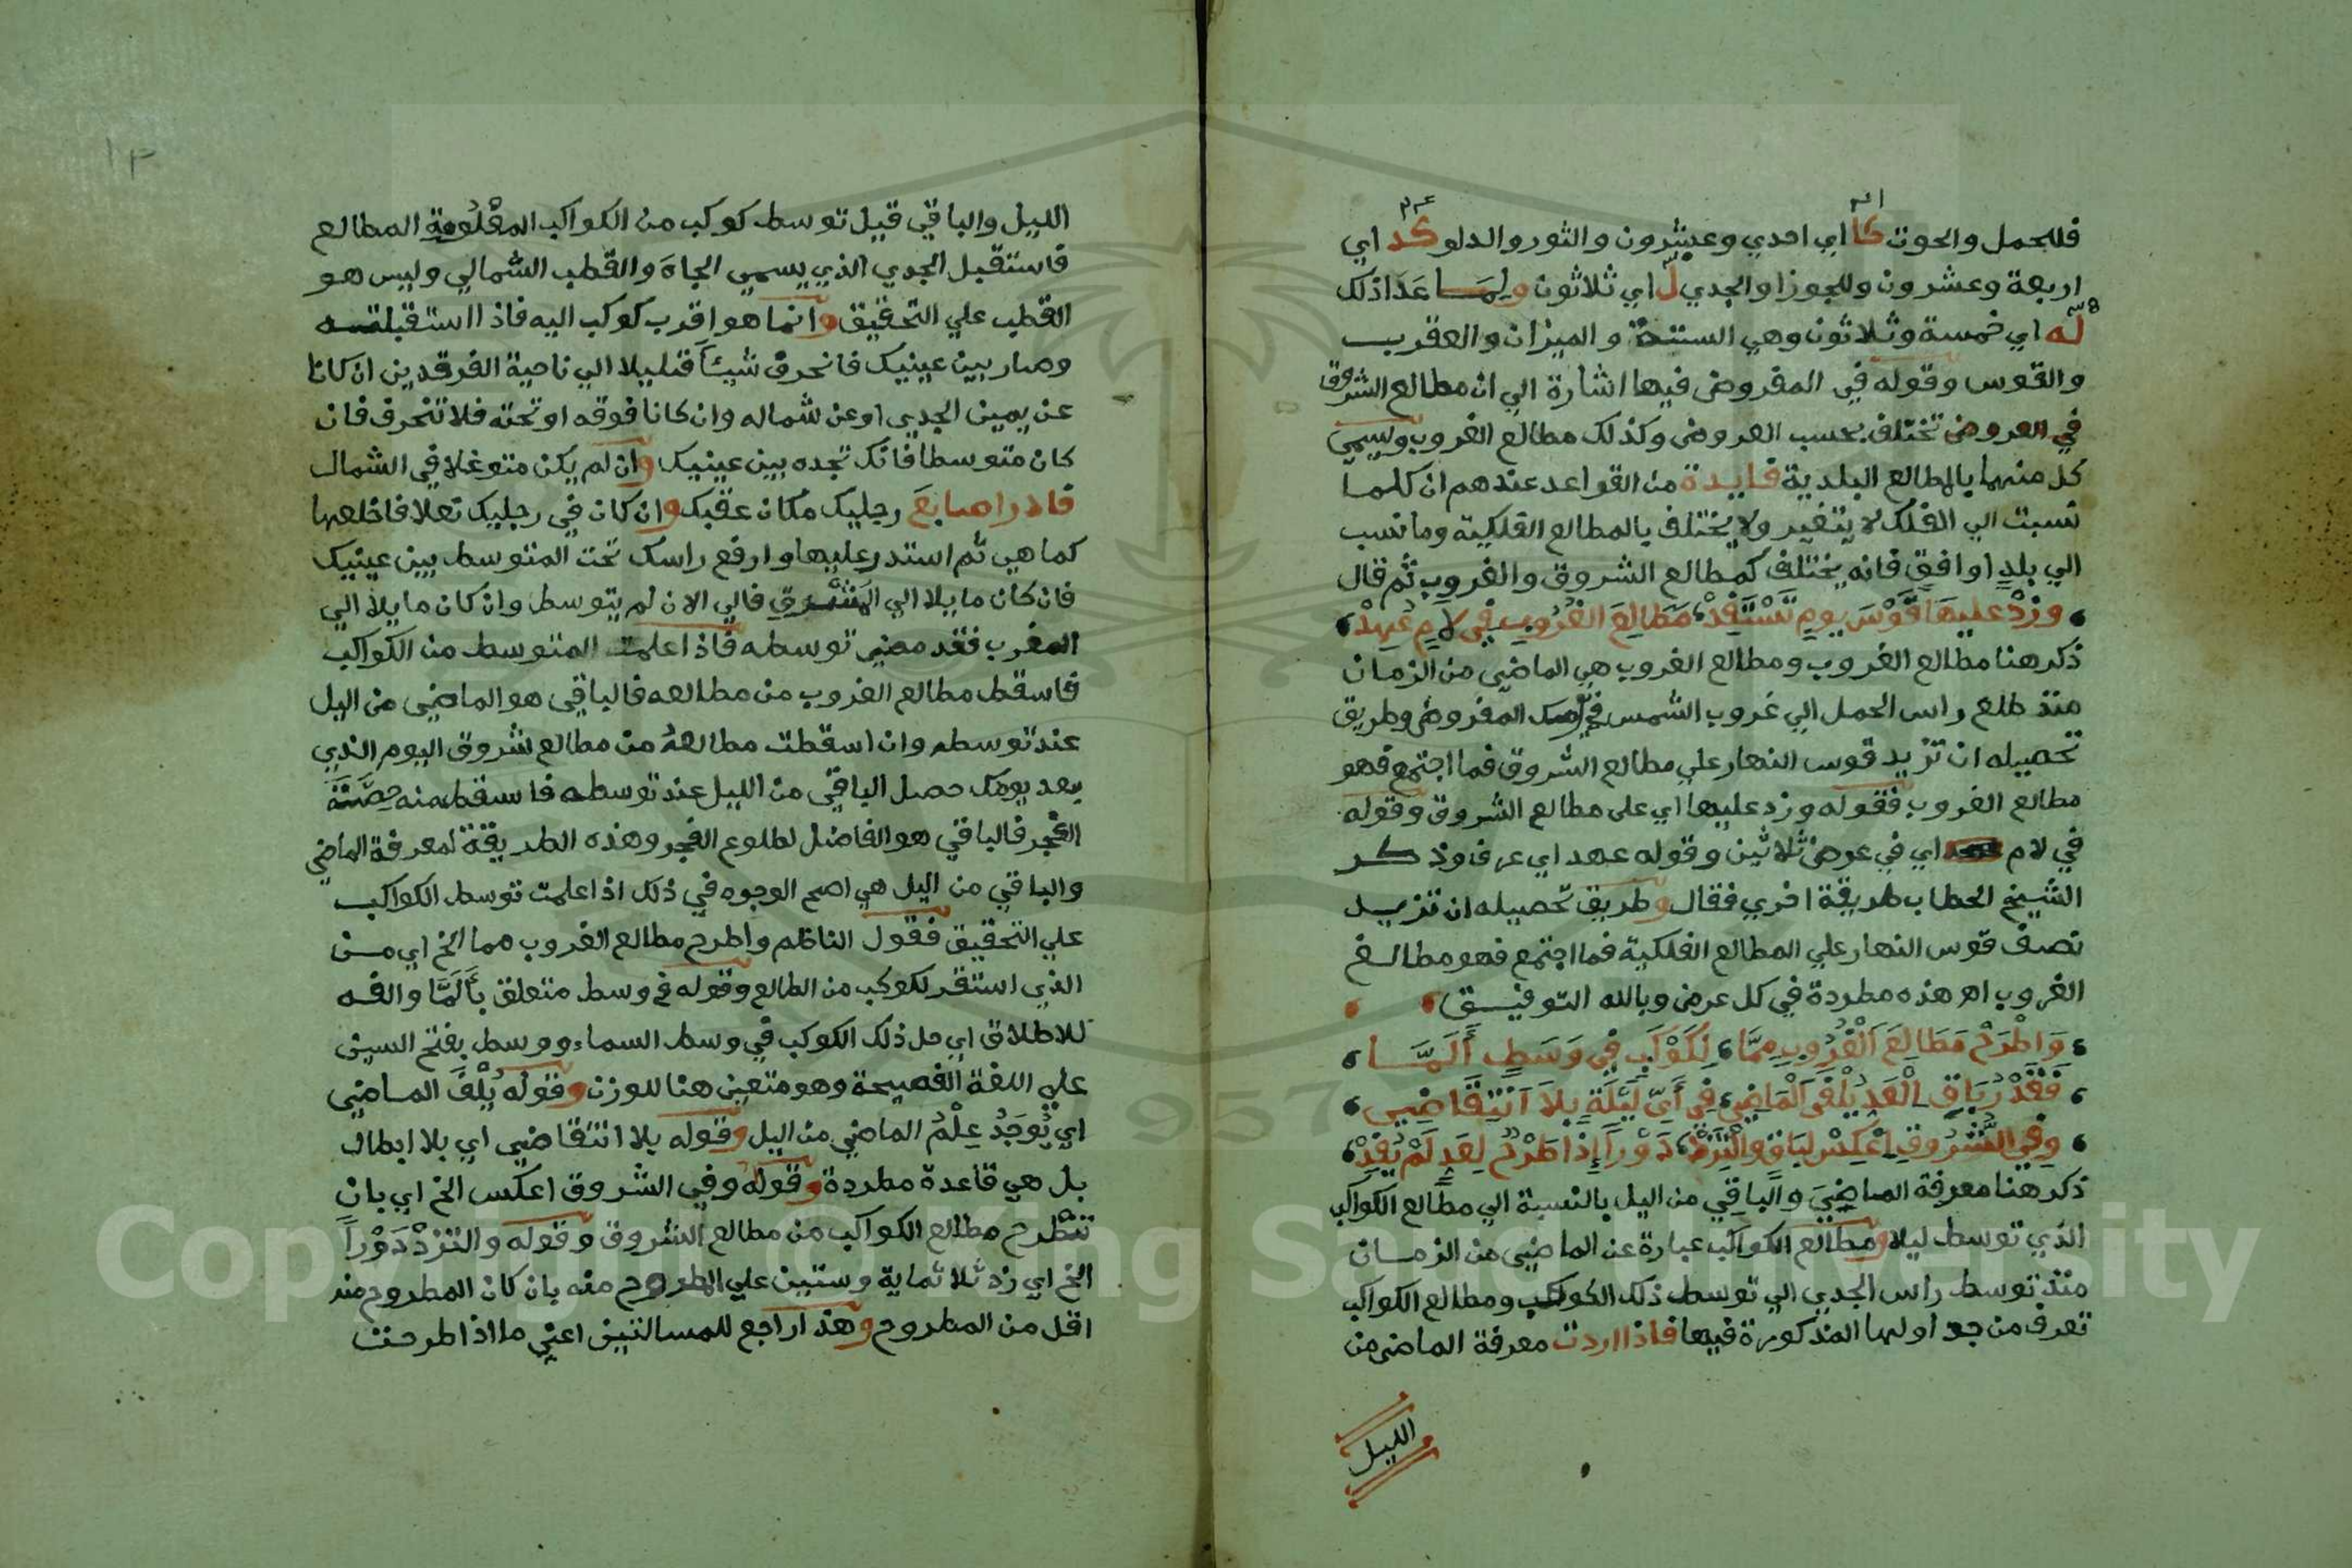 فللحمل والحوت كا اي احدي وعشرون والثور والدلو كد اي
اربعة وعشرون وللجوزا والجدي ل اي ثلاثون ولما عدا ذلك
له اي خمسة وثلاثون وهي الستة و الميزان والعقرب
والقوس وقوله في المفروض فيها اشارة الي ان مطالع الشروق
في العروض تختلف بحسب العروض وكذلك مطالع الغروب وتسمي
كل منهما بالمطالع البلدية فايدة من القواعد عندهم ان كلما
نسبت الي الفلك لا يتغير ولا يختلف بالمطالع الفلكية وما نسب
الي بلد او افق فانه يختلف كمطالع الشروق والغروب ثم قال
وزد عليها قوس يوم تستفد مطالع الغروب في لام عهد
ذكر هنا مطالع الغروب ومطالع الغروب هي الماضي من الزمان
منذ طلع راس الحمل الي غروب الشمس في يومك المفروض وطريق
تحصيله ان تزيد قوس النهار علي مطالع الشروق فما اجتمع فهو
مطالع الغروب فقوله وزد عليها اي على مطالع الشروق وقوله
في لام اي في عرض ثلاثين وقوله عهد اي عرف وذكر
الشيخ الحطاب طريقة اخري فقال وطريق تحصيله ان تزيد
نصف قوس النهار علي المطالع الفلكية فما اجتمع فهو مطالع
الغروب اهر هذه مطردة في كل عرض وبالله التوفيق
وَاطْرَحْ مَطَالِعَ الْغُرُوبِ مِمَّا لِكَوْكَبٍ فِي وَسَطٍ أَلَمَّا
فَقَدْرُ بَاقِ الْعَدِ يُلْفَى الْمَاضِي فِي أَيِّ لَيْلَةٍ بِلَا انْتِقَاضِي
وفي الشروق اعكس لباق والتزد دورا إذا طرح لعد لم يفد
ذكر هنا معرفة الماضي والباقي من اليل بالنسبة الي مطالع الكواكب
الذي توسط ليلا ومطالع الكواكب عبارة عن الماضي من الزمان
منذ توسط راس الجدي الي توسط ذلك الكوكب ومطالع الكواكب
تعرف من جداولها المذكورة فيها فاذا اردت معرفة الماضي من
الليل
١٣
الليل والباقي قبل توسط كوكب من الكواكب المعلومة المطالع
فاستقبل الجدي الذي يسمي الجاه والقطب الشمالي وليس هو
القطب علي التحقيق وانما هو اقرب كوكب اليه فاذا استقبلته
وصار بين عينيك فانحرف شيئا قليلا الي ناحية الفرقدين ان كانا
عن يمين الجدي او عن شماله وان كانا فوقه او تحته فلا تنحرف فان
كان متوسطا فانك تجده بين عينيك وان لم يكن متوغلا في الشمال
فادر اصابع رجليك مكان عقبك وان كان في رجليك نعلا فاخلعها
كما هي ثم استدر عليها وارفع راسك تحت المتوسط بين عينيك
فان كان مايلا الي المشرق فالي الان لم يتوسط وان كان مايلا الي
المغرب فقد مضي توسطه فاذا علمت المتوسط من الكواكب
فاسقط مطالع الغروب من مطالعه فالباقي هو الماضي من اليل
عند توسطه وان اسقطت مطالعه من مطالع شروق اليوم الذي
بعد يومك حصل الباقي من الليل عند توسطه فاسقط منه حصة
الفجر فالباقي هو الفاضل لطلوع الفجر وهذه الطريقة لمعرفة الماضي
والباقي من اليل هي اصح الوجوه في ذلك اذا علمت توسط الكواكب
علي التحقيق فقول الناظم واطرح مطالع الغروب مما الخ اي من
الذي استقر لكوكب من الطالع وقوله في وسط متعلق بألَمَّا والفه
للاطلاق اي حل ذلك الكوكب في وسط السماء ووسط بفتح السين
علي اللغة الفصيحة وهو متعين هنا للوزن وقوله يُلْفَ الماضي
اي يُوجَدُ عِلْمُ الماضي من اليل وقوله بلا انتقاضي اي بلا ابطال
بل هي قاعدة مطردة وقوله وفي الشروق اعكس الخ اي بان
تطرح مطالع الكواكب من مطالع الشروق وقوله والتزد دَوْراً
الخ اي زد ثلاثماية وستين علي المطروح منه بان كان المطروح منه
اقل من المطروح وهذا راجع للمسالتين اعني ما اذا طرحت